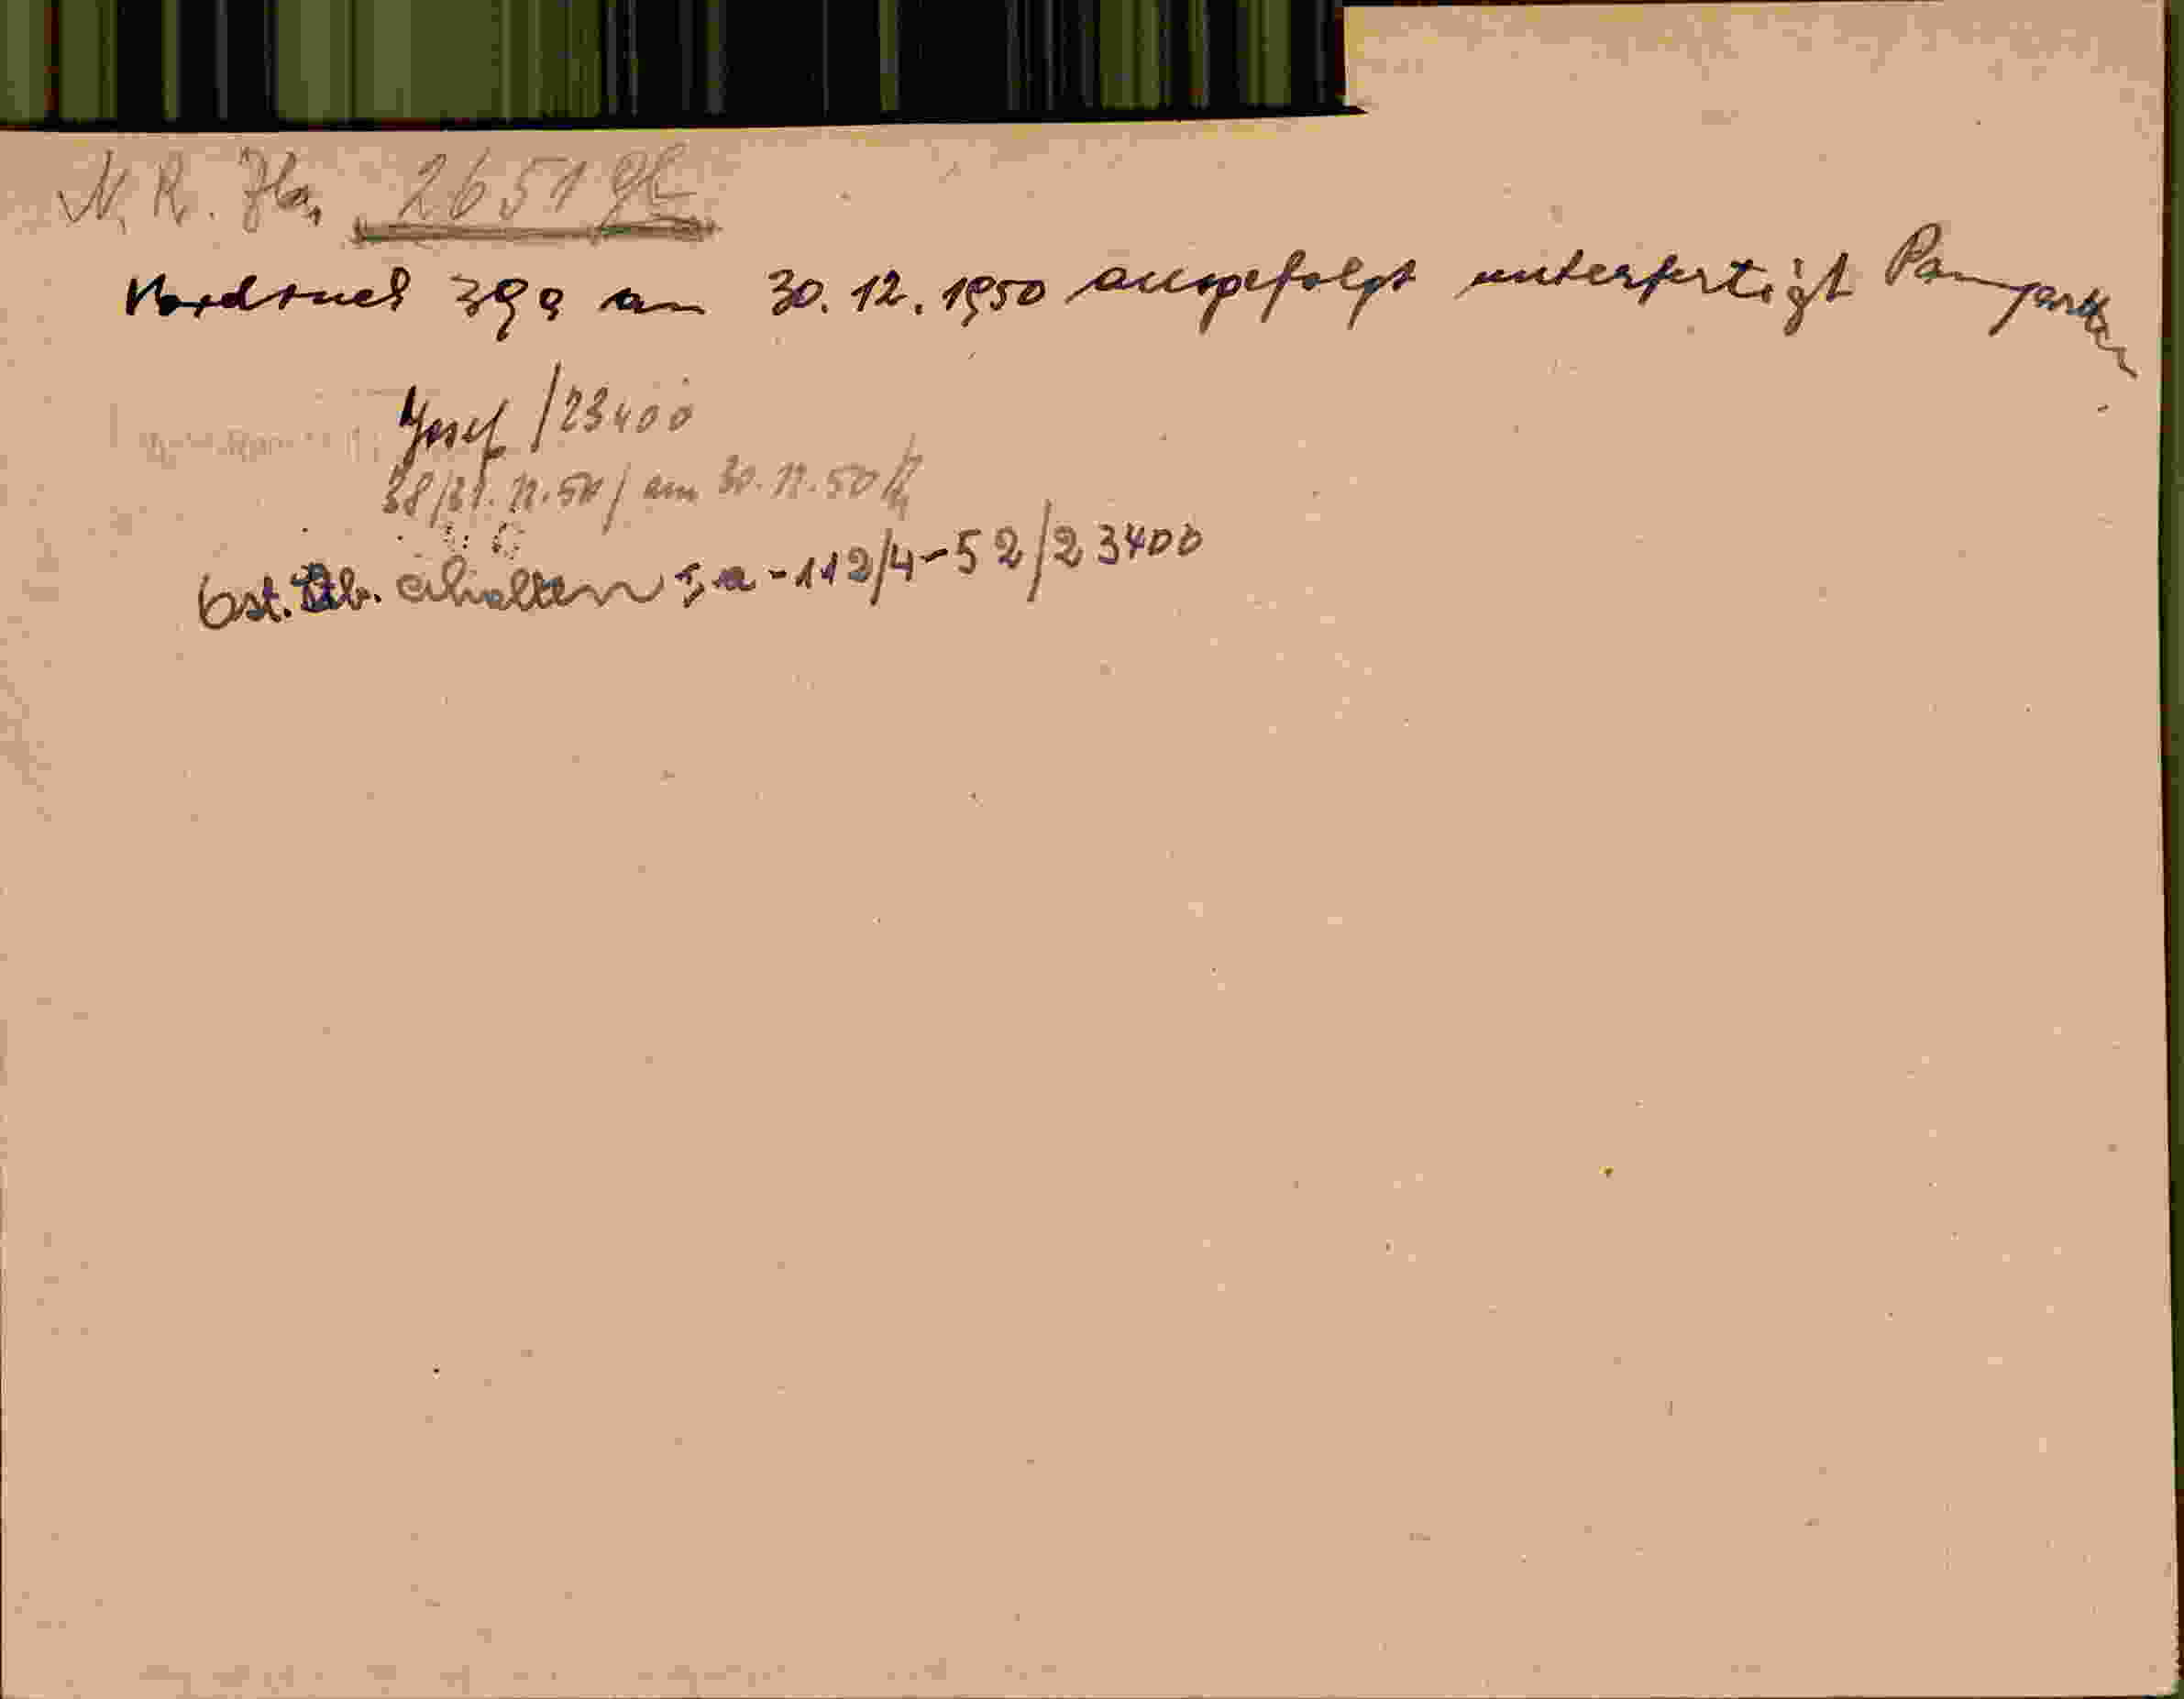 N. R. Ha, 2651
Vordruck 399 am 30. 12. 1950 ausgefolgt unterfertigt
Josef /23400
38/31.12.50/ am 30.12.50
erhalten -112/4-52/23400